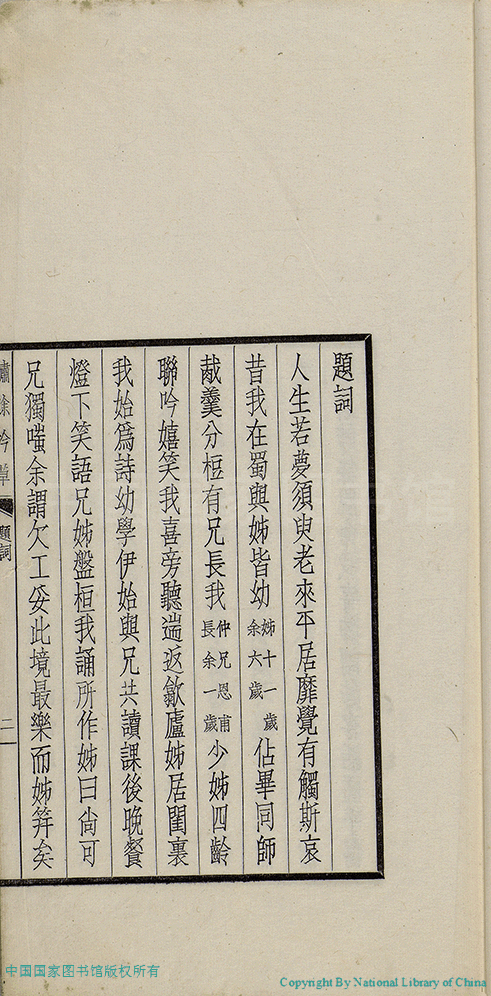 題詞
人生若夢須臾老來平居靡覺有觸斯哀
昔我在蜀與姊皆幼姊十一歲余六歲佔畢同師
胾羹分桓有兄長我仲兄恩甫長余一歲少姊四齡
聯吟嬉笑我喜旁聽遄返歙廬姊居閨裏
我始爲詩幼學伊始與兄共讀課後晚餐
燈下笑語兄姊盤桓我誦所作姊曰尙可
兄獨嗤余謂欠工妥此境最樂而姊笄矣
餘吟草
題詞
二
中国国家图书馆版权所有
Copyright By National Library of China